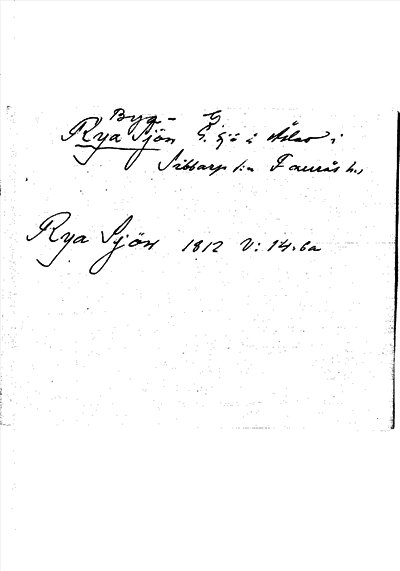 Byg-
Rya Sjön sjö i
Sibbarp sn Faurås hd
Rya Sjön 1812 V: 14. 6a